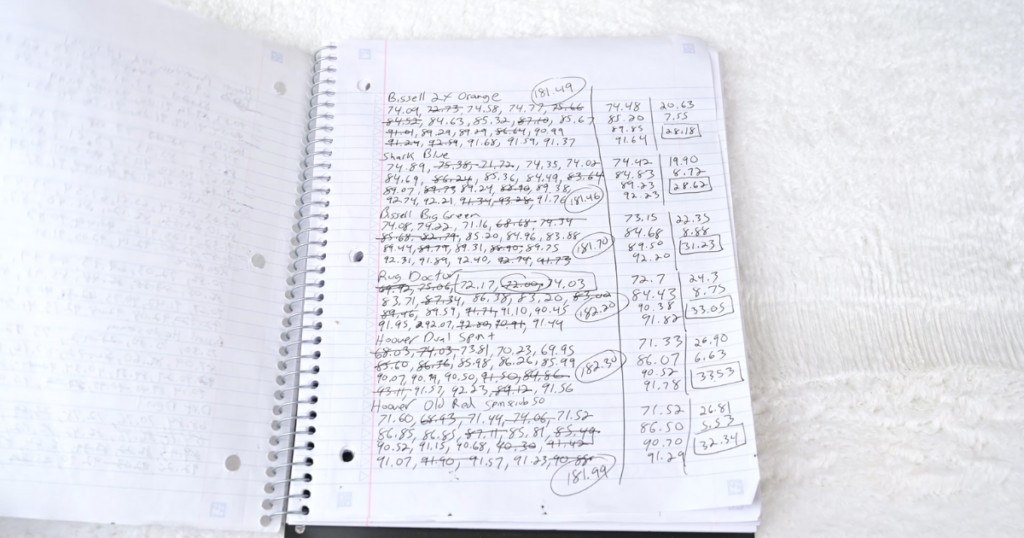 Bissell 2x Orange 181.49
74.09, 72.73, 74.58, 74.77, 75.66 74.48 20.63
84.52, 84.63, 85.32, 87.10, 85.67 85.20 7.55
91.01, 89.29, 89.19, 86.64, 90.99 89.85 28.18
91.29, 92.59, 91.68, 91.59, 91.37 91.64
Shark Blue
74.89, 75.38, 71.72, 74.35, 74.02 74.42 19.90
84.69, 86.24, 85.36, 84.49, 83.64 84.83 8.72
89.07, 89.73, 89.24, 89.38 89.23 28.62
92.74, 92.21, 91.34, 93.28, 91.76 181.46 92.23
Bissell Big Green
74.08, 74.22, 71.16, 68.68, 79.34 73.15 22.35
85.68, 82.79, 85.20, 84.96, 83.88 84.68 8.88
89.44, 89.79, 89.31, 89.75 181.70 89.50 31.23
92.31, 91.89, 92.40, 92.74, 91.73 92.20
Rug Doctor
75.06, 72.17, 72.00, 74.03 72.7 24.3
83.71, 87.34, 86.38, 83.20, 83.02 84.43 8.75
89.59, 91.71, 91.10, 90.45 182.20 90.38 33.05
91.95, 92.07, 92.80, 91.44 91.82
Hoover Dual Spin
68.03, 74.03, 73.81, 70.23, 69.95 71.33 26.90
85.60, 86.76, 85.98, 86.26, 85.99 86.07 6.63
90.07, 90.99, 90.50, 91.50, 89.86 182.30 90.52 33.53
93.11, 91.57, 92.23, 89.12, 91.56 91.78
Hoover Old Red
71.60, 68.43, 71.44, 74.06, 71.52 71.52 26.81
86.85, 86.85, 85.81, 85.49 86.50 5.53
90.52, 91.15, 90.68, 90.30, 91.42 90.70 32.34
91.07, 91.90, 91.57, 91.23, 90.88 91.29
181.99